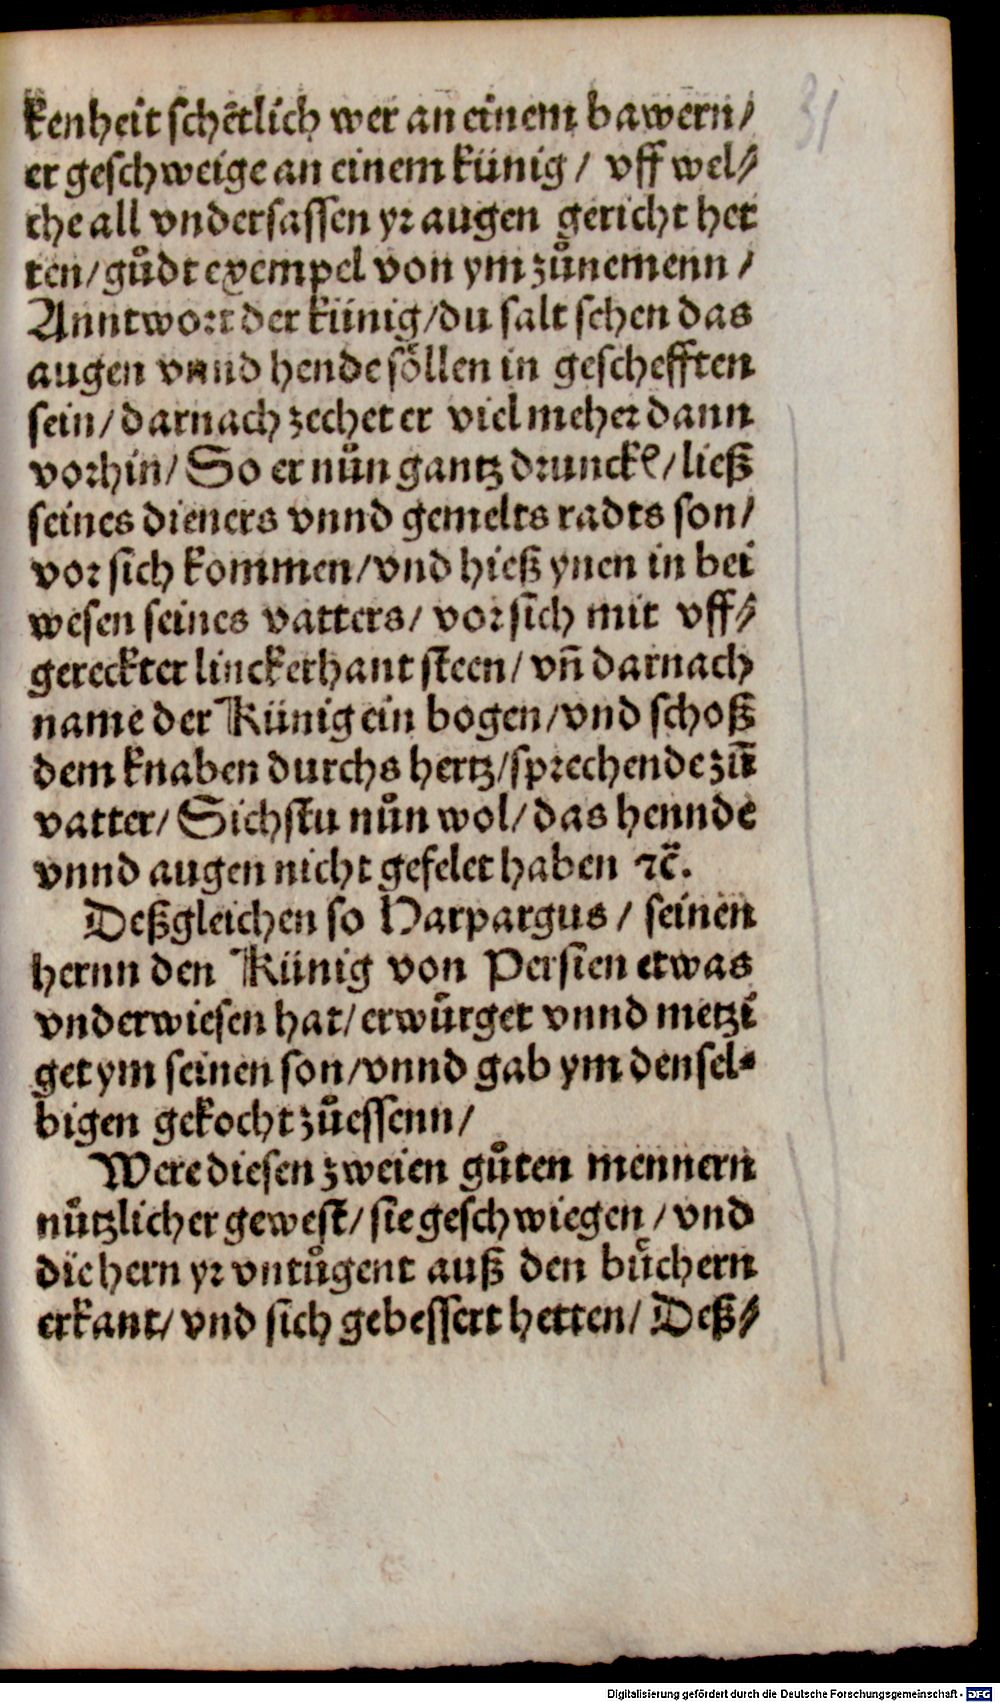 kenheit schẽtlich wer an einem bawern/
er geschweige an einem künig/ vff wel⸗
che all vndersassen yr augen gericht het
ten/gůdt exempel von ym zůnemenn/
Anntwort der künig/du salt sehen das
augen vnnd hende söllen in geschefften
sein/darnach zechet er viel meher dann
vorhin/ So er nůn gantz drunckẽ/ließ
seines dieners vnnd gemelts radts son/
vor sich kommen/vnd hieß ynen in bei
wesen seines vatters/ vor sich mit vff⸗
gereckter lincker hant steen/ vñ darnach
name der Künig ein bogen/vnd schoß
dem knaben durchs hertz/sprechende zũ
vatter/ Sichstu nůn wol/das hennde
vnnd augen nicht gefelet haben ꝛc̃.
Deßgleichen so Harpargus/ seinen
hernn den Künig von Persien etwas
vnderwiesen hat/erwürget vnnd metzi
get ym seinen son/vnnd gab ym densel⸗
bigen gekocht zůessenn/
Were diesen zweien gůten mennern
nützlicher gewest/sie geschwiegen/vnd
die hern yr vntůgent auß den büchern
erkant/vnd sich gebessert hetten/ Deß⸗
31
Digitalisierung gefördert durch die Deutsche Forschungsgemeinschaft - DFG